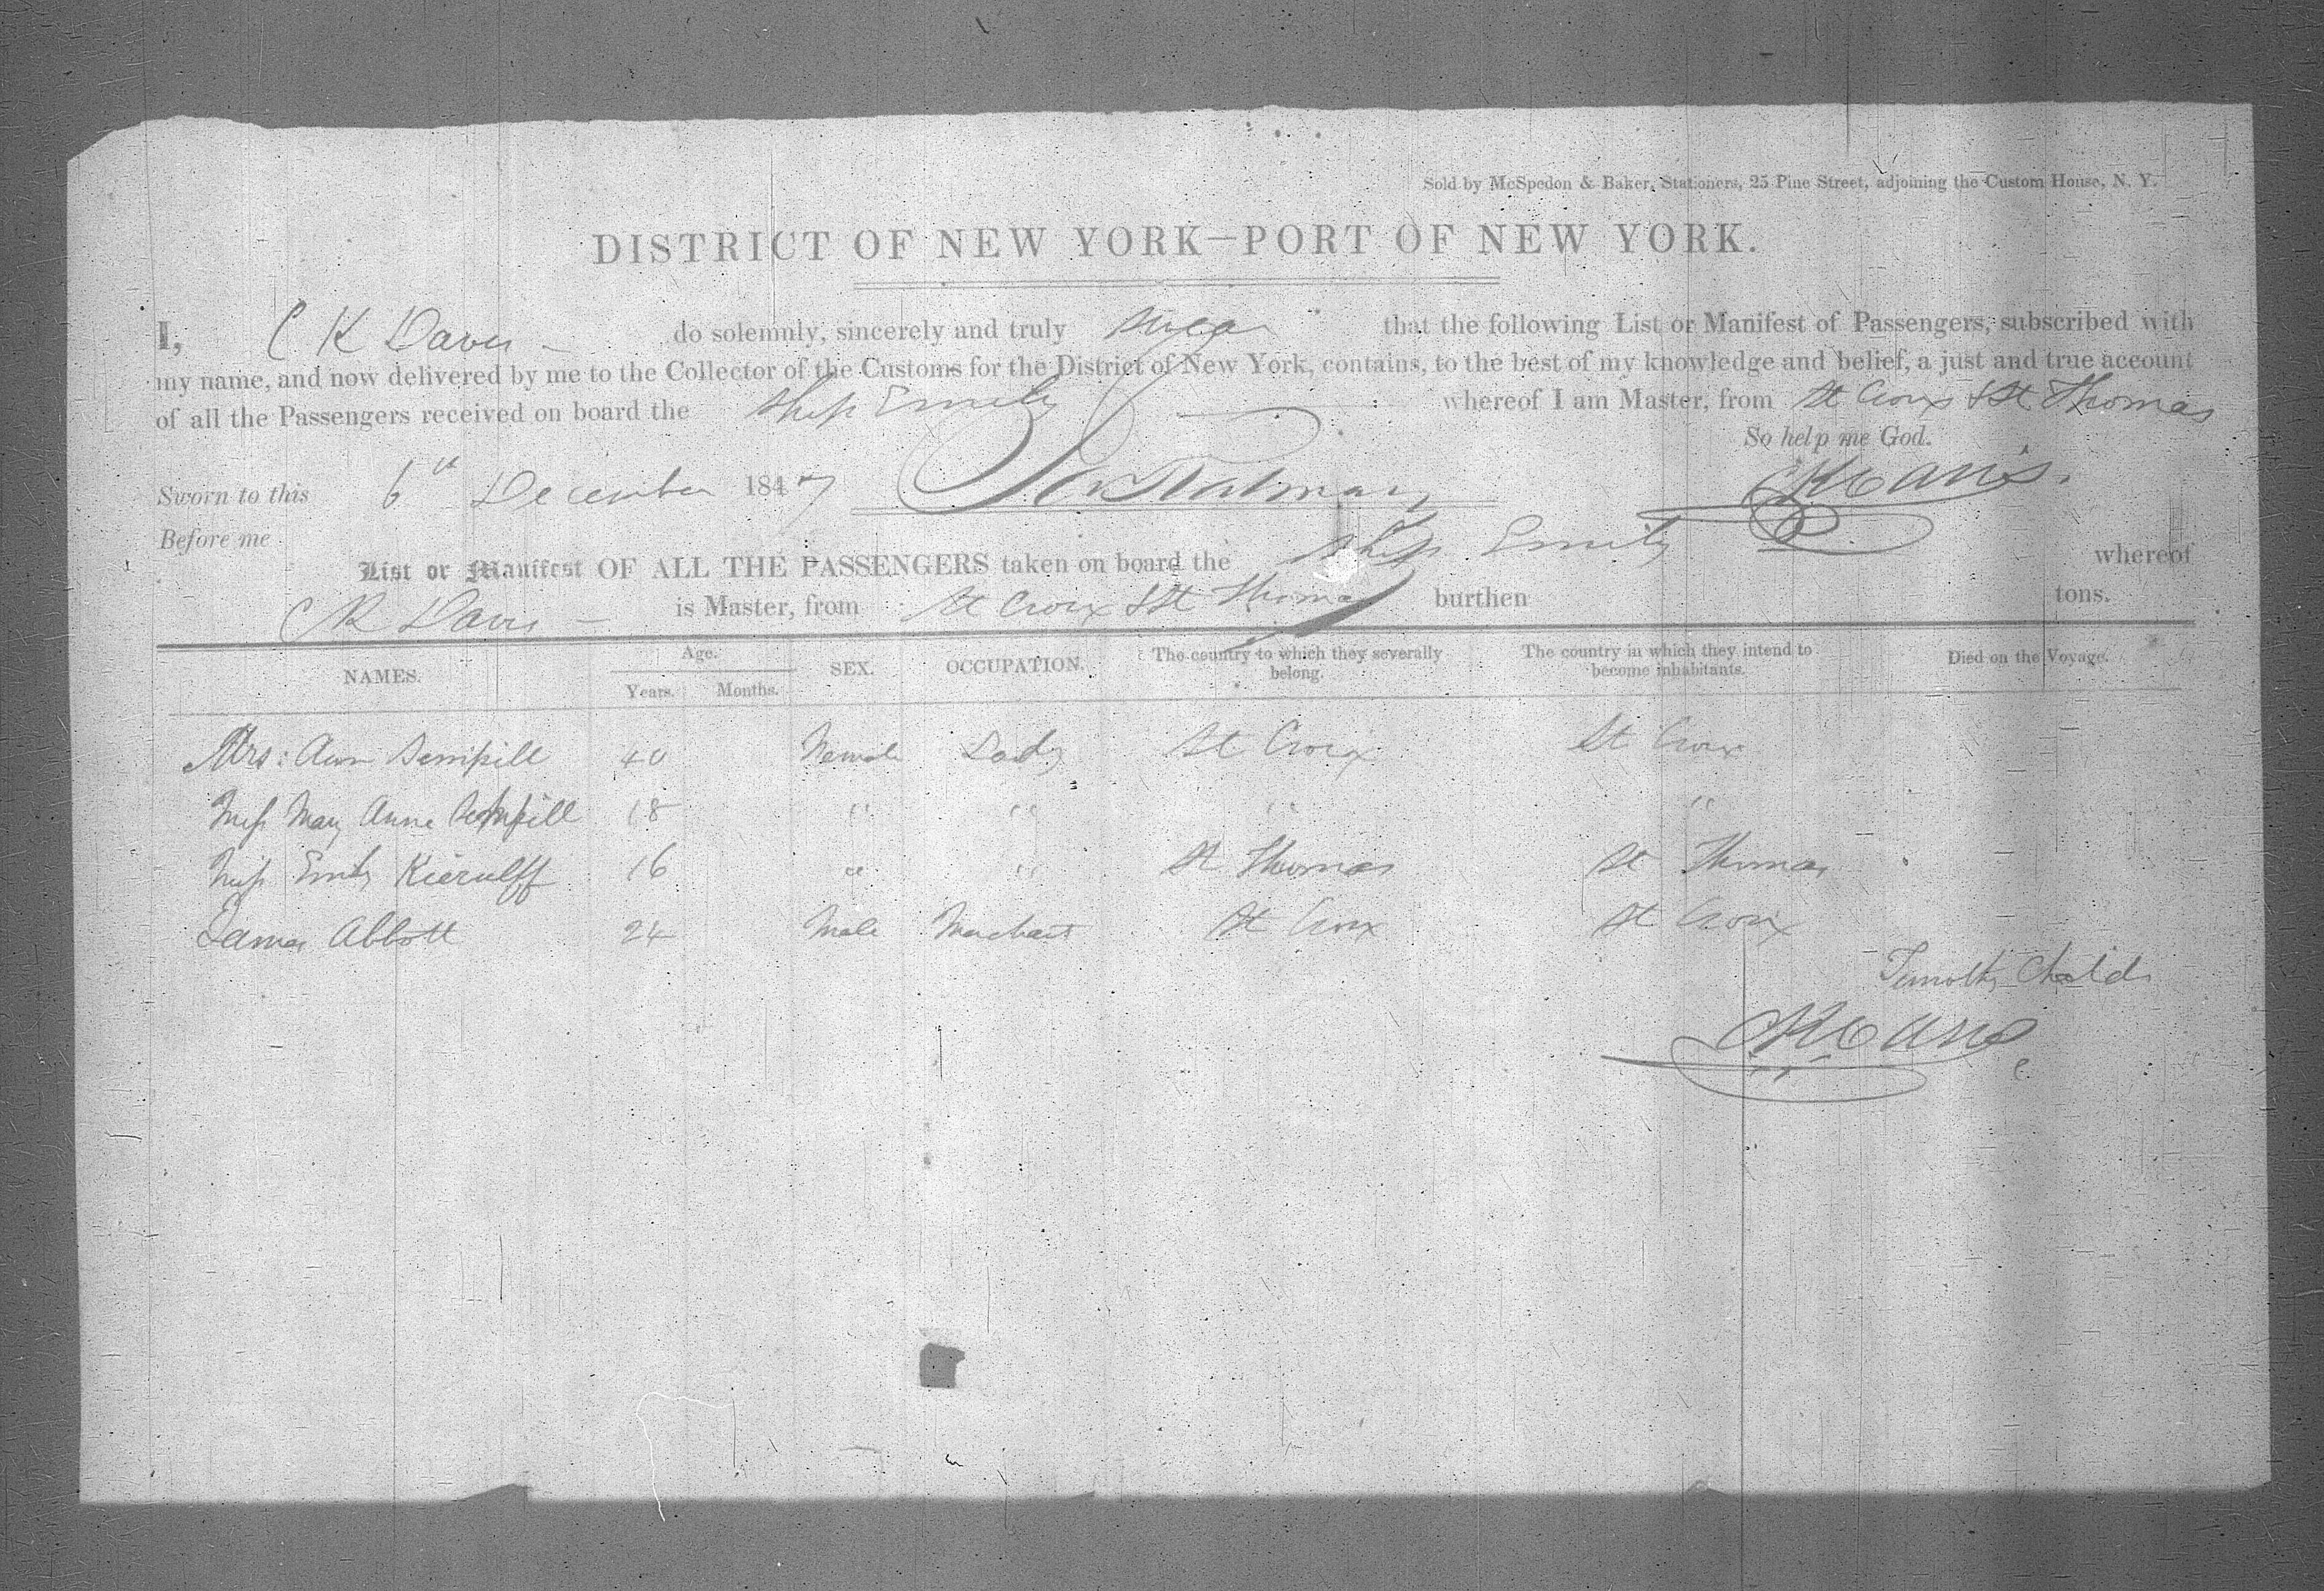 Sold by McSpedon & Baker, Stationers, 25 Pine Street, adjoining the Custom House, N. Y.
DISTRICT OF NEW YORK—PORT OF NEW YORK.
I, C K Davis - do solemnly, sincerely and truly swear that the following List or Manifest of Passengers, subscribed with
my name, and now delivered by me to the Collector of the Customs for the District of New York, contains, to the best of my knowledge and belief, a just and true account
of all the Passengers received on board the Ship Emily whereof I am Master, from St Croix & St Thomas
So help me God.
Sworn to this 6th December 1847 CK Davis.
Before me
List or Manifest OF ALL THE PASSENGERS taken on board the Ship Emily whereof
C K Davis - is Master, from St Croix & St Thomas burthen tons.
NAMES. Age. Years. Months. SEX. OCCUPATION. The country to which they severally belong. The country in which they intend to become inhabitants. Died on the Voyage.
Mrs: Ann Sempill 40 Female Lady St Croix St Croix
Miss Mary Anne Sempill 18 " " " "
Miss Emily Kierulff 16 " " St Thomas St Thomas
James Abbott 24 Male Merchant St Croix St Croix
Timothy
CK Davis